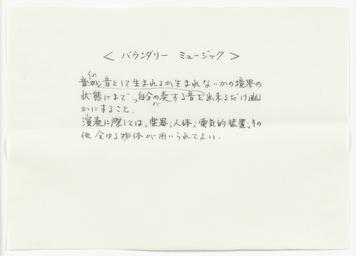 ＜ バウンダリー ミュージック ＞
音が音として生まれるか生まれないかの境界の
状態にまで、自分の奏する音を出来るだけ幽
かにすること。
演奏に際しては、楽器、人体、電気的装置、その
他全ゆる物体が用いられてよい。